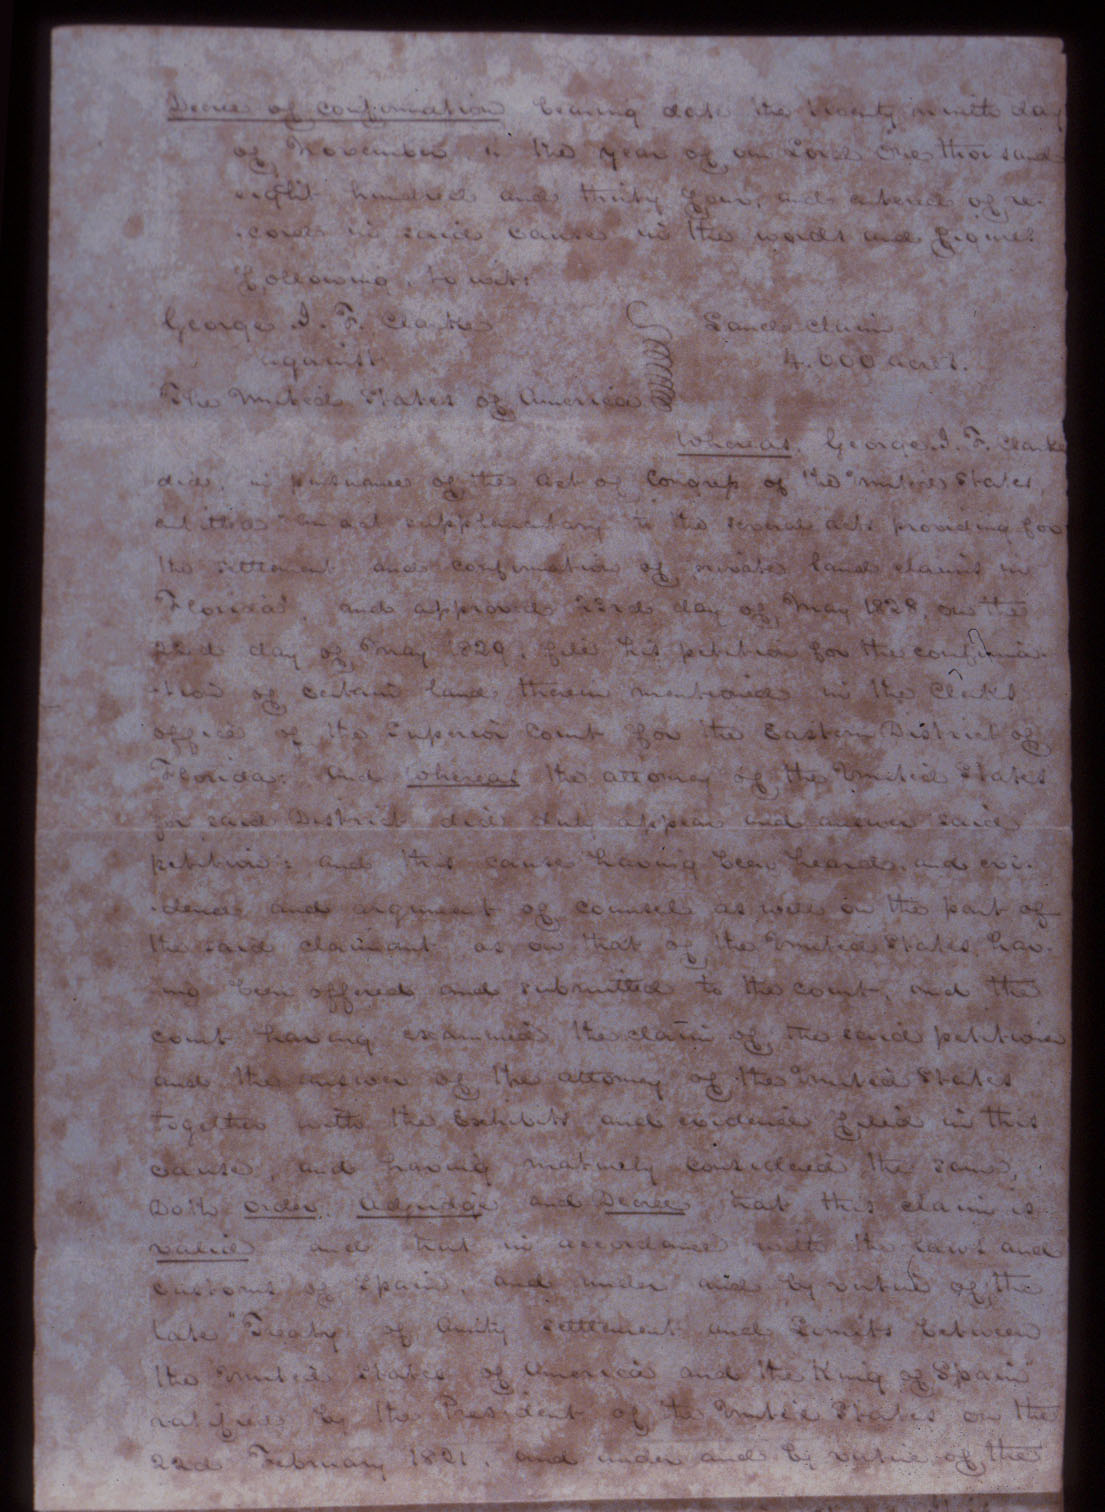 Decree of confirmation bearing date the twenty ninth day
of November in the year of our Lord One thousand
eight hundred and thirty four, and entered of re-
cord in said cause in the words and figures
following, to wit:
George J. F. Clarke Land claim
against 4.000 acres.
The United States of America
Whereas, George J. F. Clarke
did, in pursuance of the act of Congress of the United States,
entitled "an act supplementary to the several acts providing for
the settlement and confirmation of private land claims in
Florida", and approved 23rd day of May 1828, on the
22d day of May 1829, file his petition for the confirma-
tion of certain land therein mentioned in the Clerks
office of the Superior Court for the Eastern District of
Florida: and whereas the attorney of the United States
for said District did duly appear and answer said
petition: and this cause having been heard and evi-
dence and argument of counsel as well on the part of
the said claimant as on that of the United States hav-
ing been offered and submitted to the court, and the
court having examined the claim of the said petitioner
and the answer of the attorney of the United States
together with the Exhibits and evidence filed in this
cause, and having maturely considered the same,
Doth order adjudge and Decree that this claim is
valid and that in accordance with the laws and
customs of Spain, and under and by virtue of the
late Treaty of Amity settlement and Limits between
the United States of America and the King of Spain
ratified by the President of the United States on the
22d February 1821, and under and by virtue of the